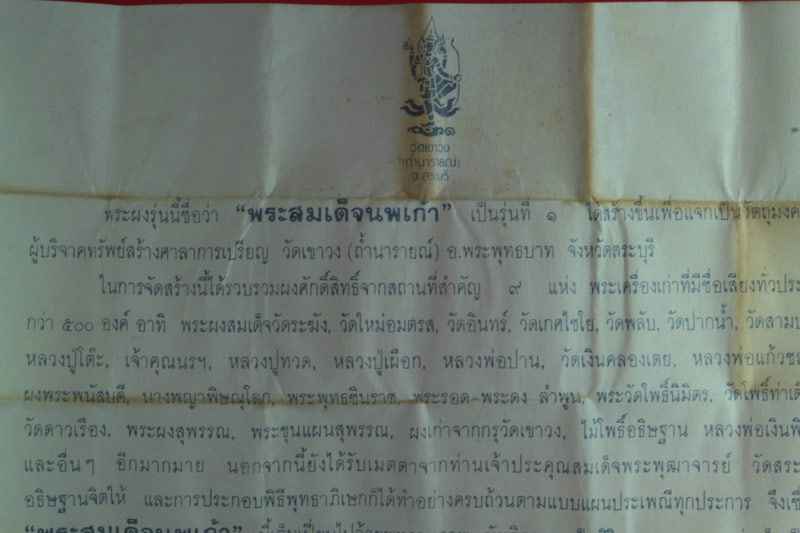 วัดเขาวง
(ถ้ำนารายณ์)
จ.สระบุรี
พระผงรุ่นนี้ชื่อว่า "พระสมเด็จนพเก้า" เป็นรุ่นที่ ๑ ได้สร้างขึ้นเพื่อแจกเป็นวัตถุมงค
ผู้บริจาคทรัพย์สร้างศาลาการเปรียญ วัดเขาวง (ถ้ำนารายณ์) อ.พระพุทธบาท จังหวัดสระบุรี
ในการจัดสร้างนี้ได้รวบรวมผงศักดิ์สิทธิ์จากสถานที่สำคัญ ๙ แห่ง พระเครื่องเก่าที่มีชื่อเสียงทั่วประ
กว่า ๕๐๐ องค์ อาทิ พระผงสมเด็จวัดระฆัง, วัดใหม่อมตรส, วัดอินทร์, วัดเกศไชโย, วัดพลับ, วัดปากน้ำ, วัดสาม
หลวงปู่โต๊ะ, เจ้าคุณนรฯ, หลวงปู่ทวด, หลวงปู่เผือก, หลวงพ่อปาน, วัดเงินคลองเตย, หลวงพ่อแก้ว
ผงพระพนัสบดี, นางพญาพิษณุโลก, พระพุทธชินราช, พระรอด-พระดง ลำพูน, พระวัดโพธิ์นิมิตร, วัดโพธิ์ท่าเตี
วัดดาวเรือง, พระผงสุพรรณ, พระขุนแผนสุพรรณ, ผงเก่าจากกรุวัดเขาวง, ไม้โพธิ์อธิษฐาน หลวงพ่อเงินพิ
และอื่นๆ อีกมากมาย นอกจากนี้ยังได้รับเมตตาจากท่านเจ้าประคุณสมเด็จพระพุฒาจารย์ วัดสระ
อธิษฐานจิตให้ และการประกอบพิธีพุทธาภิเษกก็ได้ทำอย่างครบถ้วนตามแบบแผนประเพณีทุกประการ จึงเชื่
"พระสมเด็จนพเก้า"